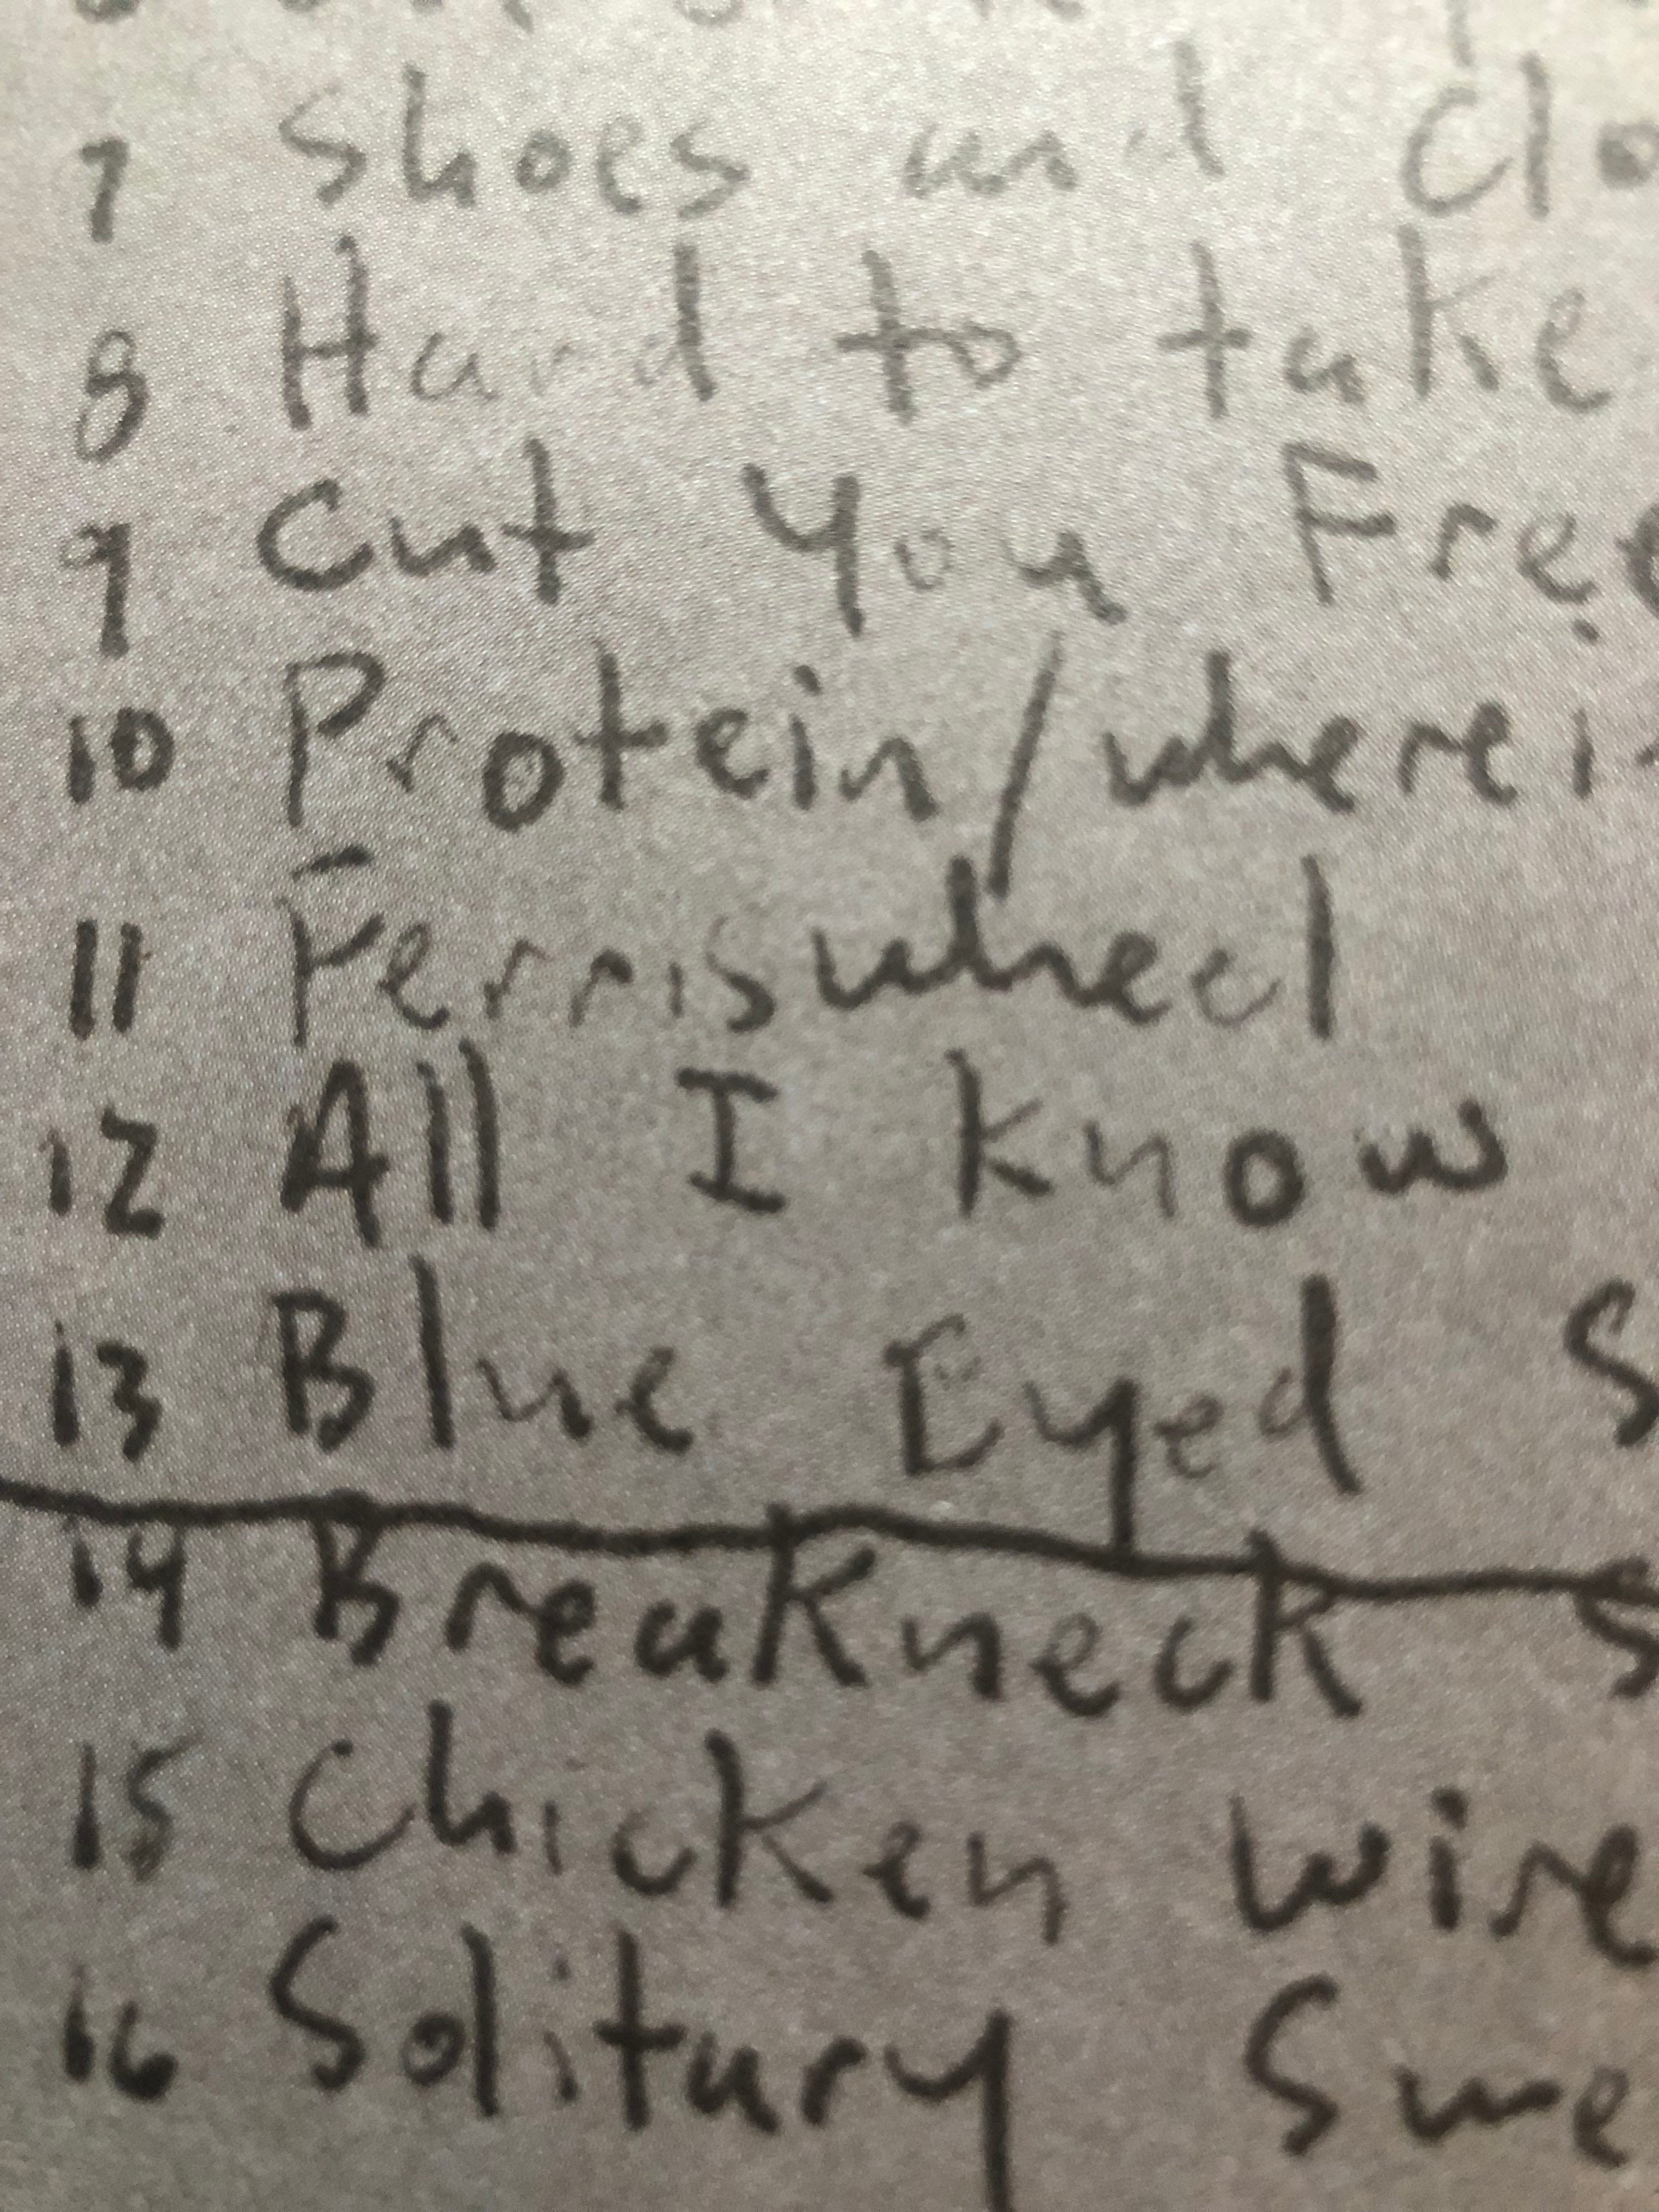 7 Shoes and Clo
8 Hard to take
9 Cut You Free
10 Protein/where i
11 Ferriswheel
12 All I know
13 Blue Eyed S
14 Breakneck S
15 Chicken wire
16 Solitary Swe